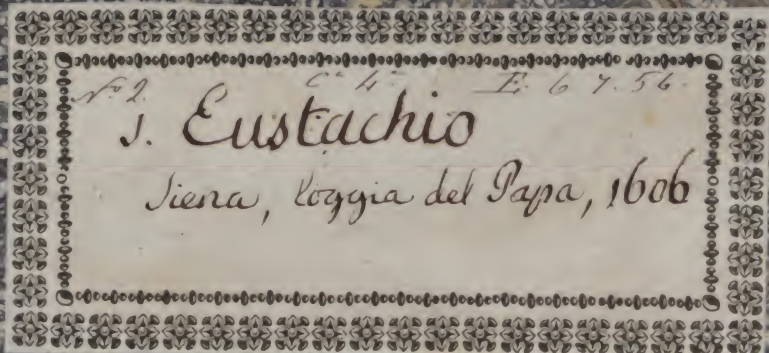 No 2. Ca 4a E. 6 7. 56.
S. Eustachio
Siena, loggia del Papa, 1606